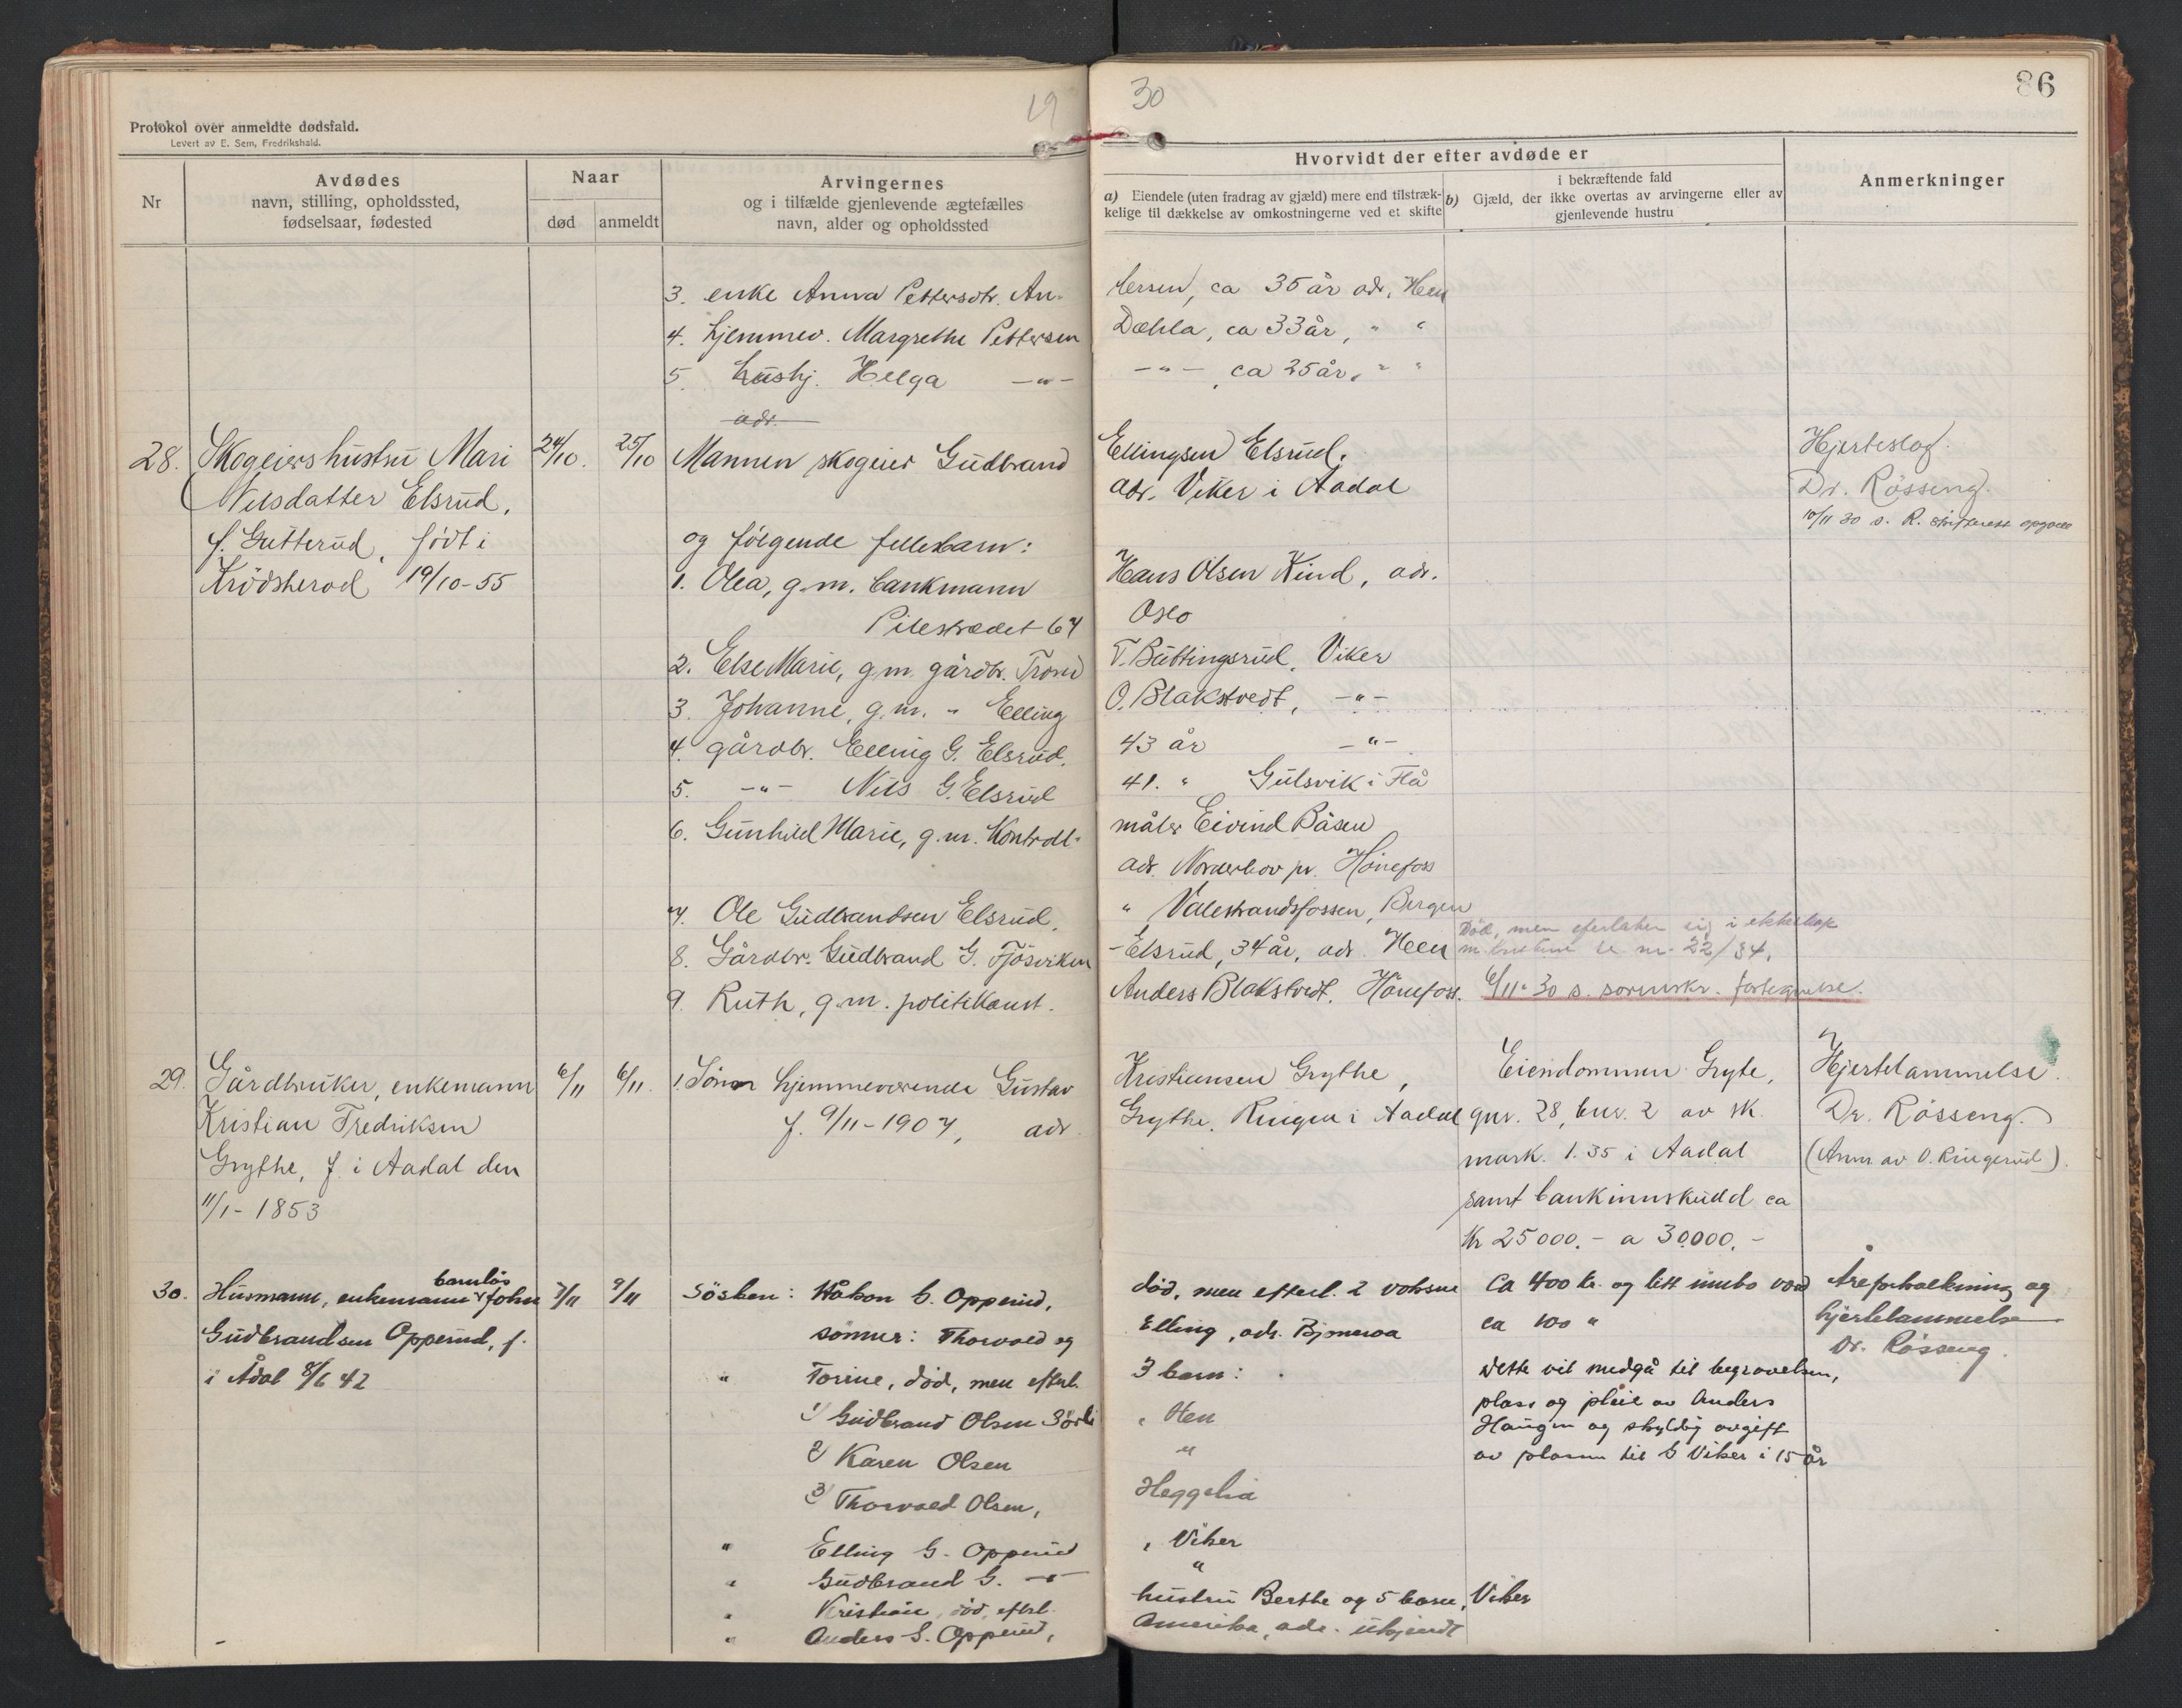 19
30
86
Protokol over anmeldte dødsfald.
Levert av E. Sem, Fredrikshald.
Nr
Avdødes
navn, stilling, opholdssted,
fødselsaar, fødested
Naar
død
anmeldt
Arvingernes
og i tilfælde gjenlevende ægtefælles
navn, alder og opholdssted
Hvorvidt der efter avdøde er
a) Eiendele (uten fradrag av gjæld) mere end tilstræk-
kelige til dækkelse av omkostningerne ved et skifte
i bekræftende fald
b) Gjæld, der ikke overtas av arvingerne eller av
gjenlevende hustru
Anmerkninger
3. enke Anna Pettersdtr. An- dersen, ca 35 år adr. Heen
4. hjemmev. Margrethe Pettersen Dæhla, ca 33 år, " "
5. hushj. Helga -"- -"-, ca 25 år, " "
adr.
28. Skogeiers hustru Mari 24/10. 25/10 Mannen skogeier Gudbrand Ellingsen Elsrud, Hjerteslag.
Nilsdatter Elsrud, adr. Viker i Aadal Dr. Rösseng.
10/11 30 s. R.
f. Gutterud, født i og følgende fellesbarn:
Krödsherad 19/10-55 1. Olea, g.m. bankmann Hans Olsen Kind, adr.
Pilestrædet 67 Oslo
2. Else Marie, g.m. gårdbr. Trond T. Buttingsrud, Viker
3. Johanne, g.m. " Elling O. Blakstvedt, -"-
4. gårdbr. Elling G. Elsrud, 43 år -"-
5. -"- Nils G. Elsrud 41. " Gulsvik i Flå
6. Gunhild Marie, g.m. Kontroll- måler Eivind Båsen
adr. Norderhov pr. Hönefoss
7. Ole Gudbrandsen Elsrud, " Valestrandsfossen, Bergen
Död, men efterlater sig i ekteskap
8. Gårdbr. Gudbrand G. Fjösviken - Elsrud, 34 år, adr. Heen m. hustru se nr. 22/34.
9. Ruth, g.m. politikonst. Anders Blakstvedt, Hönefoss. 6/11-30 s. sorenskr. fortegnelse.
29. Gårdbruker, enkemann 6/11 6/11. 1. Sönn hjemmeværende Gustav Kristiansen Grythe, Eiendommen Gryte, Hjertelammelse.
Kristian Fredriksen f. 9/11-1907, adr. Grythe, Ringen i Aadal gnr. 28, bnr. 2 av sk. Dr. Rösseng.
Grythe, f. i Aadal den mark. 1.35 i Aadal (Anm. av O. Ringerud).
11/1-1853 samt bankinnskudd ca
Kr 25000.- a 30.000.-
30. Husmann, enkemann barnlös John 7/11 9/11 Sösken: Håkon G. Opperud, död, men efterl. 2 voksne Ca 400 kr. og litt innbo værd Åreforkalkning og
Gudbrandsen Opperud, f. sönner: Thorvald og Elling, adr. Bjoneroa ca 100 " hjertelammelse
Dr. Rösseng.
i Ådal 8/6 42 " Torine, död, men efterl. 3 barn: Dette vil medgå til begravelsen,
1) Gudbrand Olsen Sörli, Hen plass og pleie av Anders
Haugen og skyldig avgift
2) Karen Olsen " av plassen til G Viker i 15 år
3) Thorvald Olsen, Heggelia
" Elling G. Opperud, Viker
" Gudbrand G. -"- "
" Kristian, död, efterl. hustru Berthe og 5 barn, Viker
" Anders G. Opperud, Amerika, adr. ukjendt